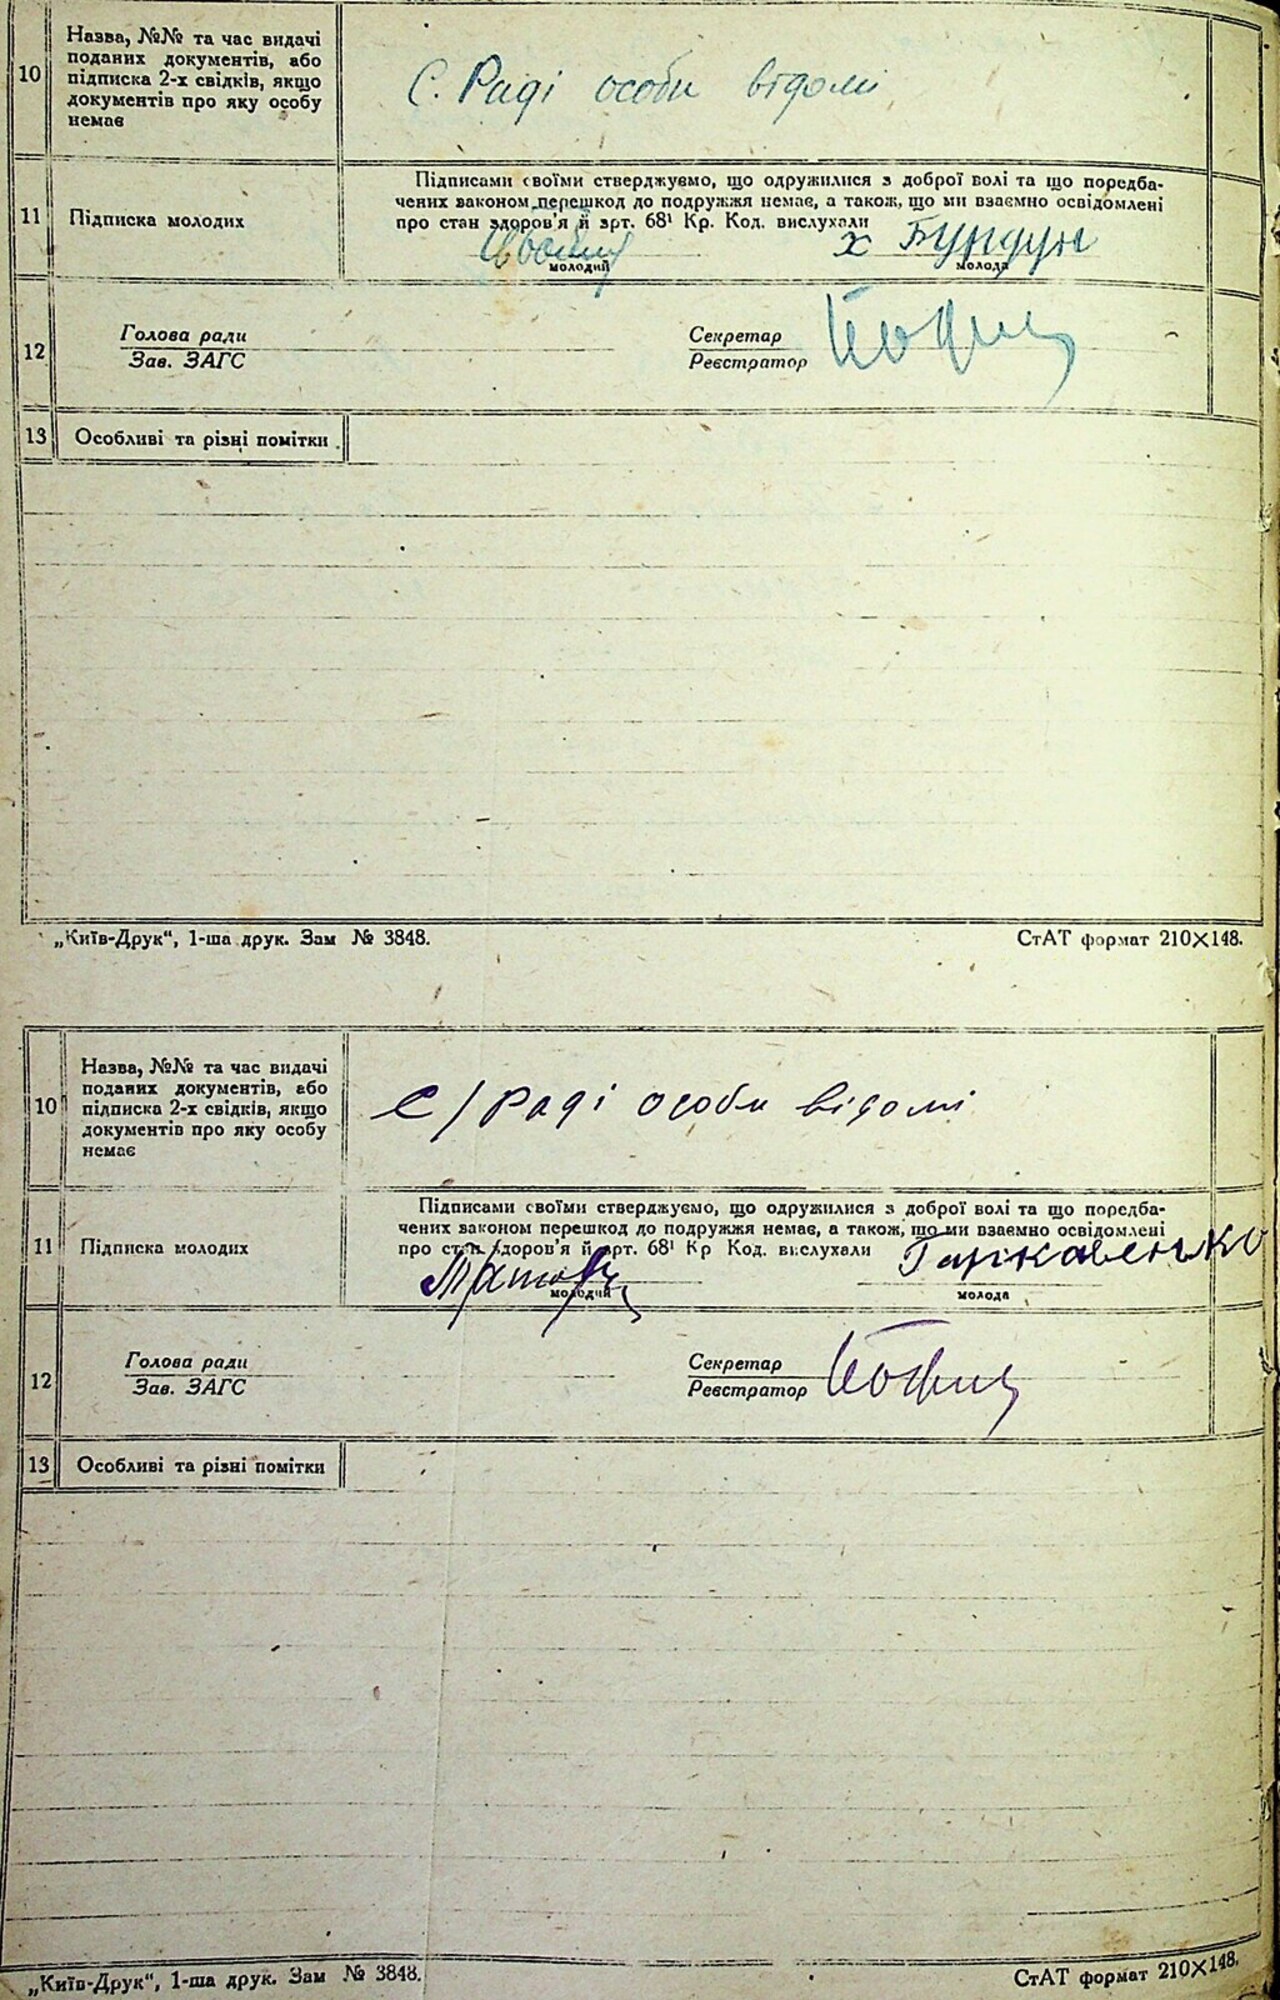 10
Назва, №№ та час видачі
поданих документів, або
підписка 2-х свідків, якщо
документів про яку особу
немає
С. Раді особи відомі
11
Підписка молодих
Підписами своїми стверджуємо, що одружилися з доброї волі та що передба-
чених законом перешкод до подружжя немає, а також, що ми взаємно освідомлені
про стан здоров'я й арт. 68¹ Кр. Код. вислухали
х Бундун
молодий
молода
12
Голова ради
Зав. ЗАГС
Секретар
Реєстратор
13
Особливі та різні помітки
„Київ-Друк“, 1-ша друк. Зам № 3848.
СтАТ формат 210×148.
10
Назва, №№ та час видачі
поданих документів, або
підписка 2-х свідків, якщо
документів про яку особу
немає
С/Раді особи відомі
11
Підписка молодих
Підписами своїми стверджуємо, що одружилися з доброї волі та що передба-
чених законом перешкод до подружжя немає, а також, що ми взаємно освідомлені
про стан здоров'я й арт. 68¹ Кр Код. вислухали
Гаркавенько
молодий
молода
12
Голова ради
Зав. ЗАГС
Секретар
Реєстратор
13
Особливі та різні помітки
„Київ-Друк“, 1-ша друк. Зам № 3848.
СтАТ формат 210×148.